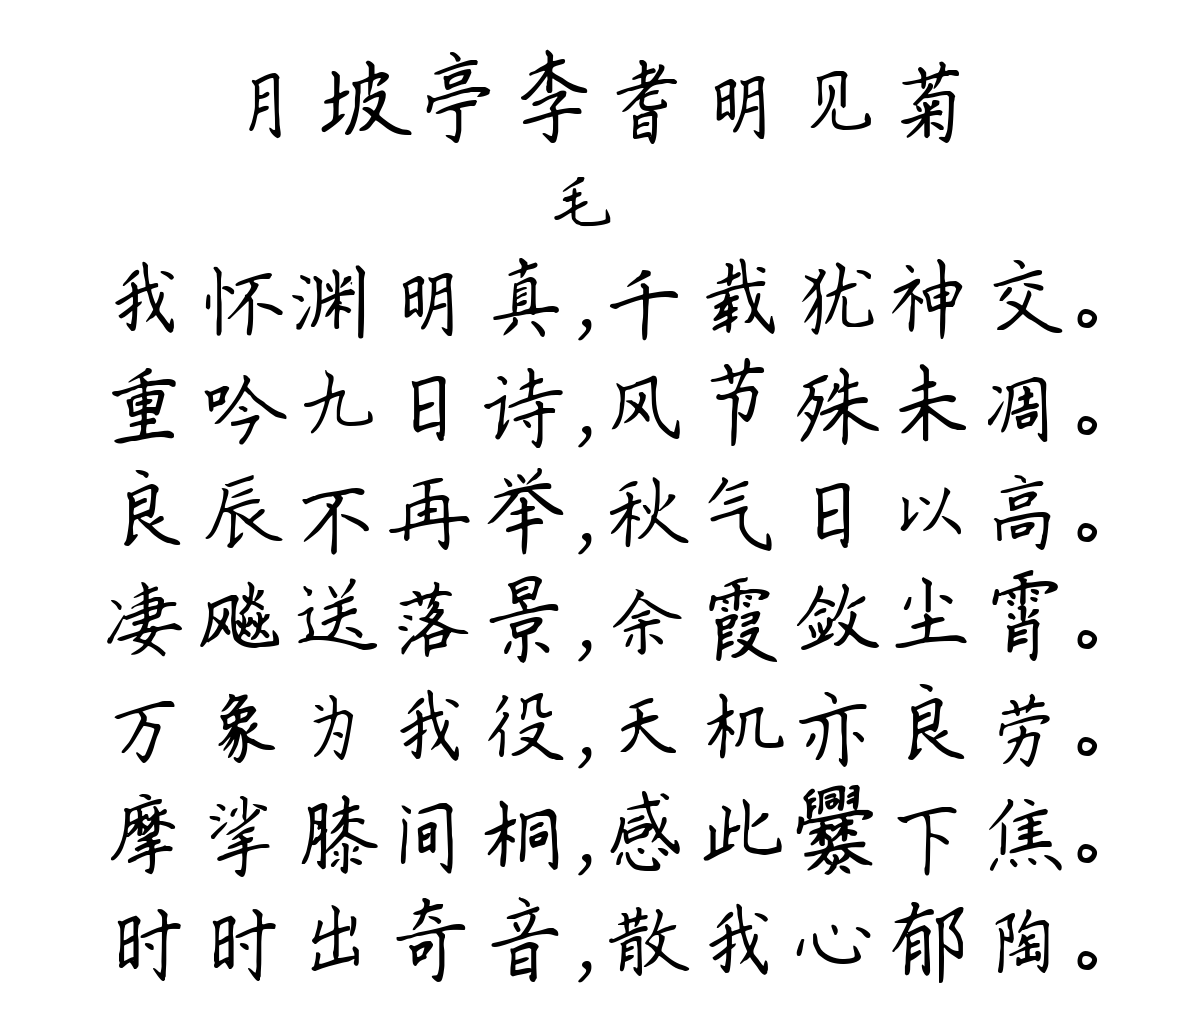 月坡亭李耆明见菊
毛
我怀渊明真,千载犹神交。
重吟九日诗,风节殊未凋。
良辰不再举,秋气日以高。
凄飚送落景,余霞敛尘霄。
万象为我役,天机亦良劳。
摩挲膝间桐,感此爨下焦。
时时出奇音,散我心郁陶。